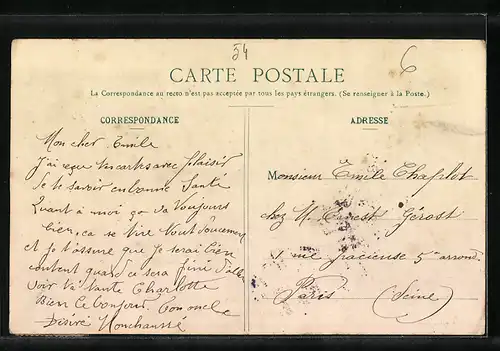 54
6
CARTE POSTALE
La Correspondance au recto n'est pas acceptée par tous les pays étrangers. (Se renseigner à la Poste.)
CORRESPONDANCE
Mon cher Emile
J'ai reçu ten cartes avec plaisir
de te savoir en bonne Santé
Quant à moi ça va toujours
bien, ca se tire tout doucement
et je t'assure que je serai bien
content quand ce sera fini d'aller
voir ta tante Charlotte
Bien le bonjour. Ton oncle
Désiré
ADRESSE
Monsieur Emile Chaplot
chez M. Ernest Gérost
rue gracieuse 5e arrond
Paris (Seine)